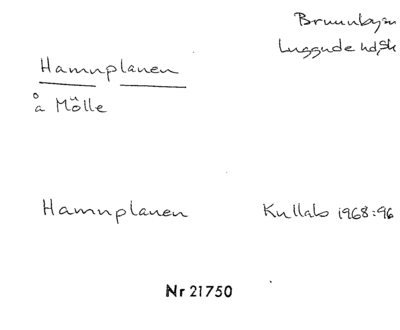 Brunnby sn
Luggude hd, Sk
Hamnplanen
å Mölle
Hamnplanen Kullab 1968:96
Nr 21750